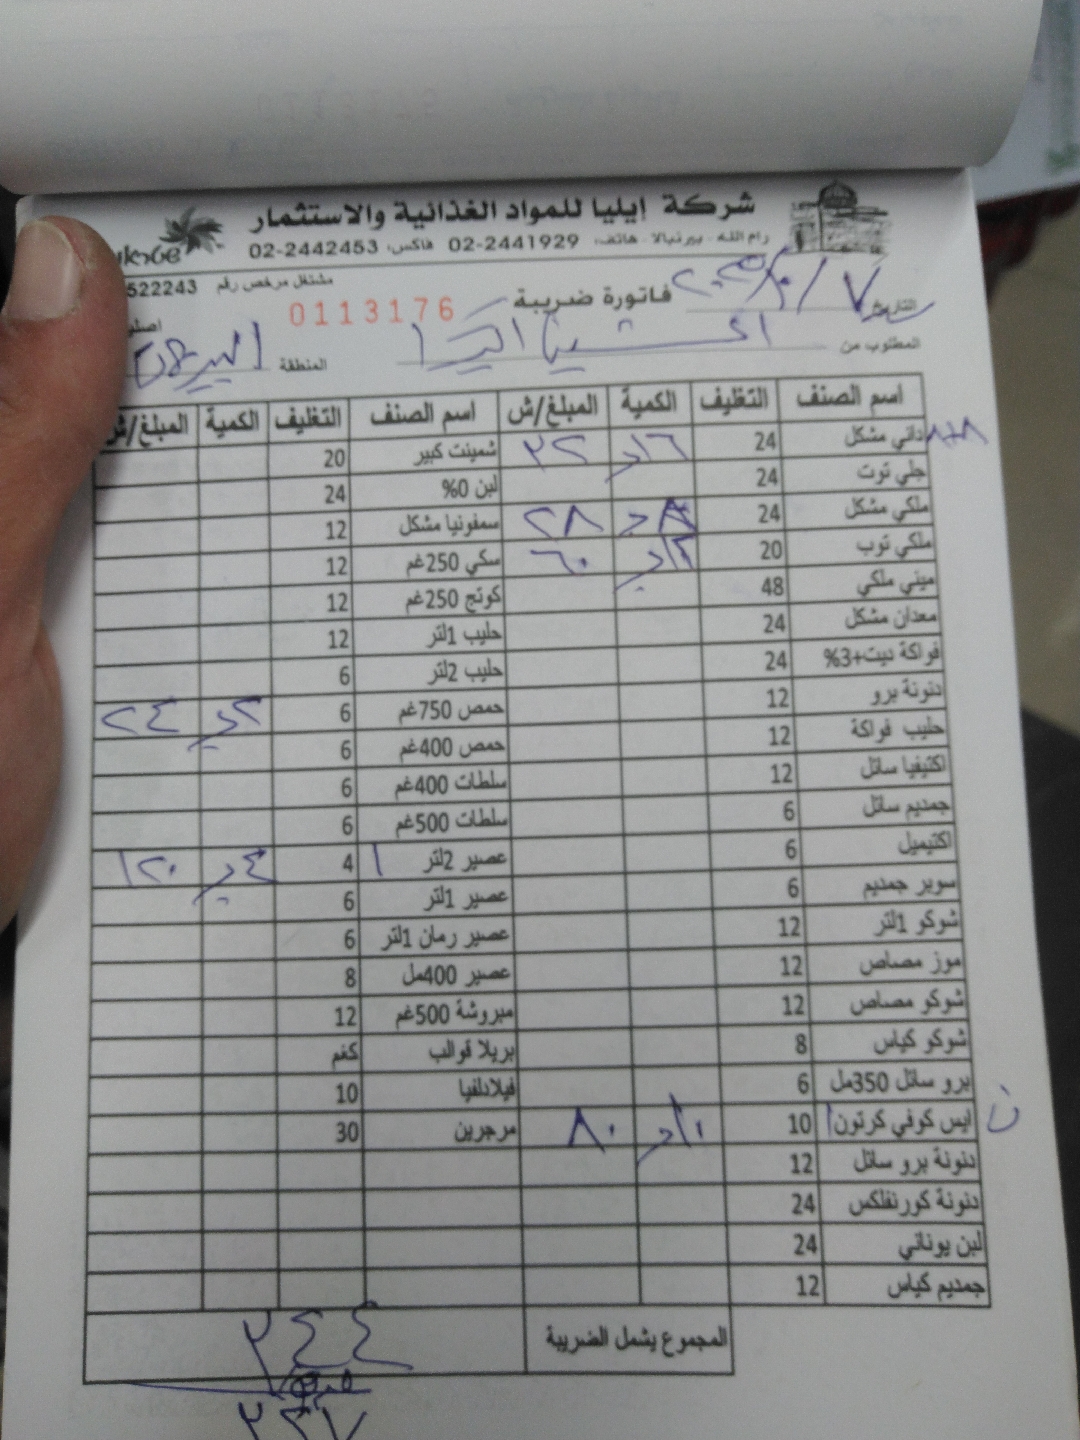 شركة إيليا للمواد الغذائية والاستثمار
رام الله - بيرنبالا - هاتف: 02-2441929 فاكس: 02-2442453
مشتغل مرخص رقم 522243
التاريخ
فاتورة ضريبة 0113176
المطلوب من المنطقة البيرة
اسم الصنف التغليف الكمية المبلغ/ش اسم الصنف التغليف الكمية المبلغ/ش
٨+٨ داني مشكل 24 ١٦ ٣٢ شمينت كبير 20
جلي توت 24 لبن 0% 24
ملكي مشكل 24 ٢٨ سمفونيا مشكل 12
ملكي توب 20 ٦٠ سكي 250غم 12
ميني ملكي 48 كوتج 250غم 12
معدان مشكل 24 حليب 1لتر 12
فواكة ديت+3% 24 حليب 2لتر 6
دنونة برو 12 حمص 750غم 6 ٢ ٢٤
حليب فواكة 12 حمص 400غم 6
اكتيفيا سائل 12 سلطات 400غم 6
جمديم سائل 6 سلطات 500غم 6
اكتيميل 6 عصير 2لتر ١ 4 ٤ ١٢٠
سوبر جمديم 6 عصير 1لتر 6
شوكو 1لتر 12 عصير رمان 1لتر 6
موز مصاص 12 عصير 400مل 8
شوكو مصاص 12 مبروشة 500غم 12
شوكو كياس 8 بريلا قوالب كغم
برو سائل 350مل 6 فيلادلفيا 10
ن ايس كوفي كرتون ١ 10 ١٠ ٨٠ مرجرين 30
دنونة برو سائل 12
دنونة كورنفلكس 24
لبن يوناني 24
جمديم كياس 12
المجموع يشمل الضريبة ٣٤٤